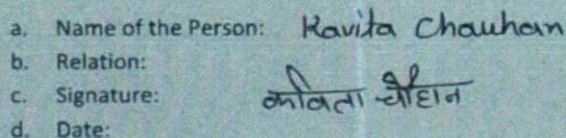 a. Name of the Person: Kavita Chauhan
b. Relation:
c. Signature: कविता चौहान
d. Date: